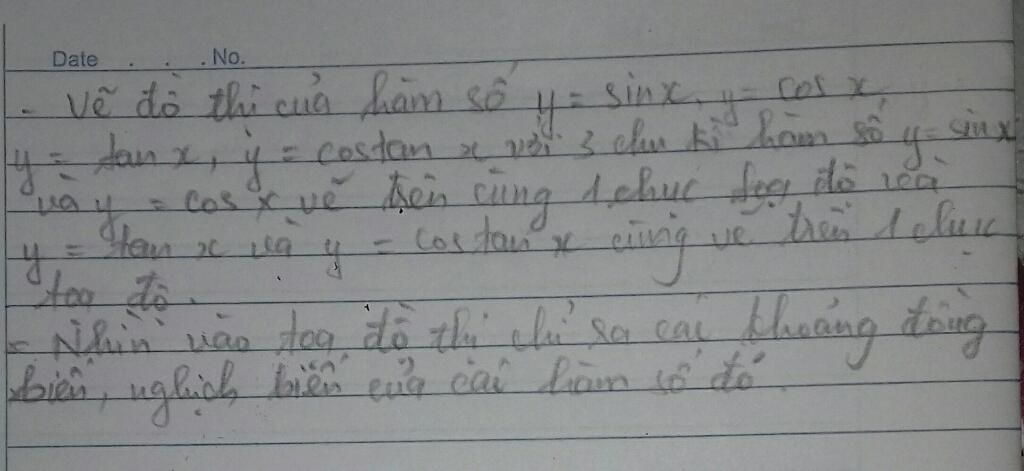 Date . . . No.
- Vẽ đồ thị của hàm số y = sinx, y = cos x
y = tan x, y = costan x với 3 chu kì hàm số y = sin x
và y = cos x vẽ trên cùng 1 chục tọa độ và
y = tan x và y = costan x cùng vẽ trên 1 chục
tọa độ.
- Nhìn vào tọa độ thị chỉ ra các khoảng đồng
biến, nghịch biến của các hàm số đó.